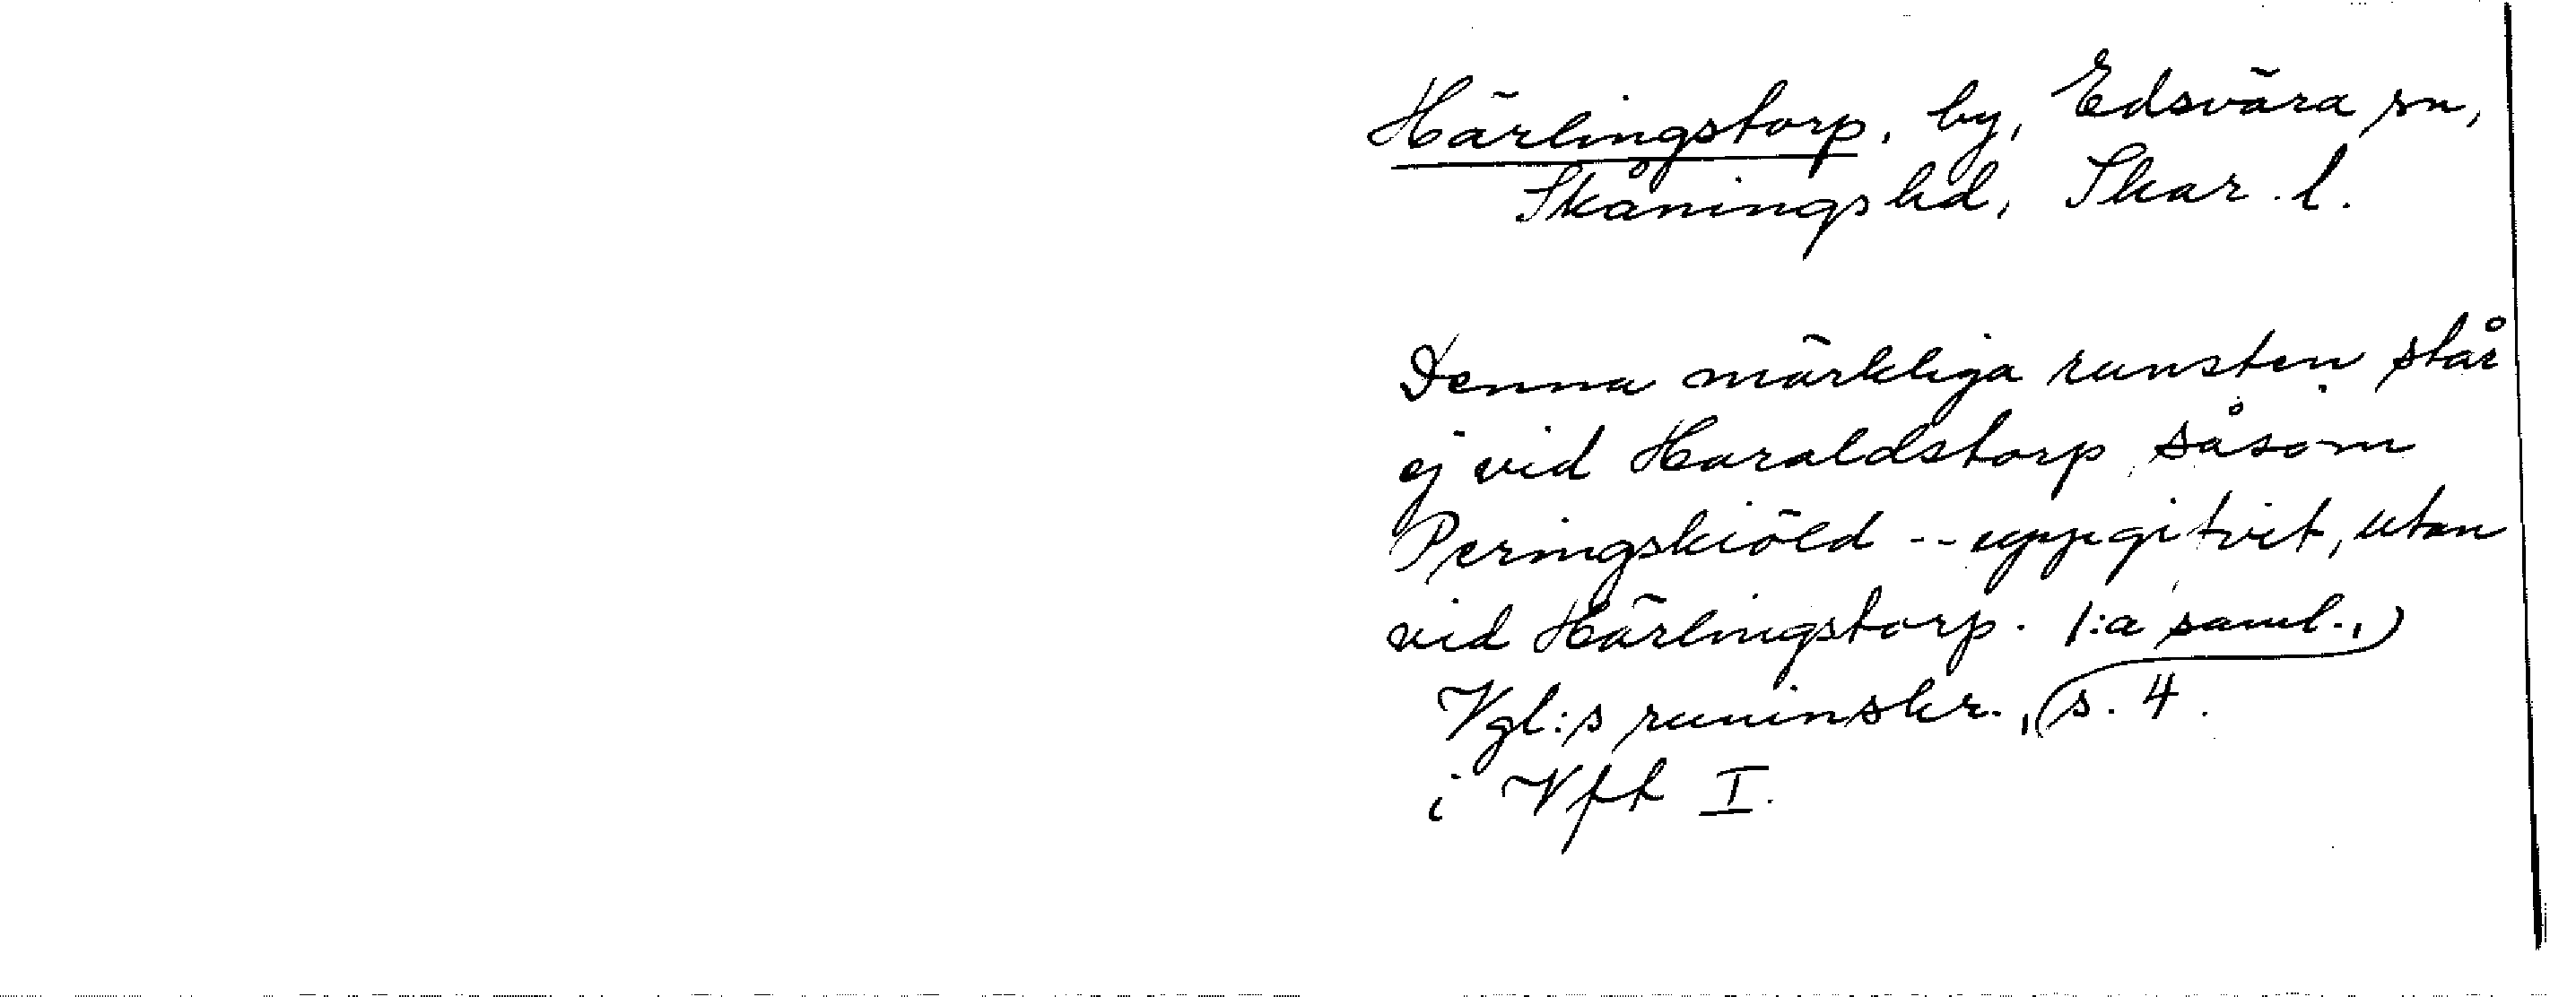 Härlingstorp, by, Edsvära sn,
Skånings hd, Skar. l.
Denna märkliga runsten står
ej vid Haraldstorp såsom
Peringskiöld -- uppgifvit, utan
vid Härlingstorp. 1:a saml.,
Vgl:s runinskr., s. 4.
i Vft I.